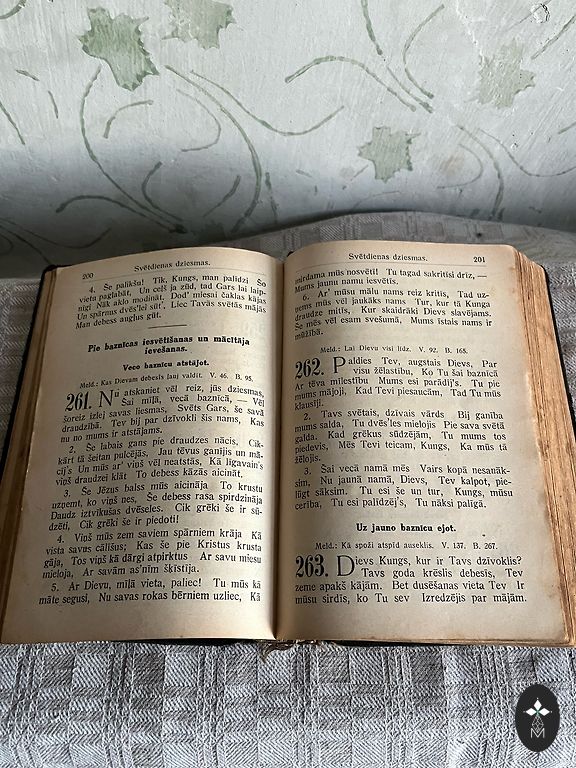 200 Svētdienas dziesmas.
4. Še palikšu! Tik, Kungs, man palīdzi Šo
vietu paglabāt. Un celš ja zūd, tad Gars lai laip-
nīgi Nāk aklo modināt. Dod' miesai čaklas kājas
Un spārnus dvēs'lei sāt'. Liec Tavās svētās mājas
Man debess augļus gūt.
Pie baznīcas iesvētīšanas un mācītāja
ievešanas.
Veco baznīcu atstājot.
Meld.: Kas Dievam debesīs ļauj valdīt. V. 46. B. 95.
261. Nu atskaniet vēl reiz, jūs dziesmas,
Šai mīļā, vecā baznīcā, — Vēl
šoreiz izlej savas liesmas, Svēts Gars, še savā
draudzībā. Tev bij par dzīvokli šis nams, Kas
nu no mums ir atstājams.
2. Še labais gans pie draudzes nācis, Cik-
kārt tā šeitan pulcējās, Jau tēvus ganījis un mā-
cij's Un mūs ar' viņš vēl neatstās, Kā līgavain's
viņš draudzei klāt To debess kāzās aicināt.
3. Še Jēzus balss mūs aicināja To krustu
uzņemt, ko viņš nes, Še debess rasa spirdzināja
Daudz iztvīkušas dvēseles. Cik grēki še ir sū-
dzēti, Cik grēki še ir piedoti!
4. Viņš mūs zem saviem spārniem krāja Kā
vista savus cālīšus; Kas še pie Kristus krusta
gāja, Tos viņš kā dārgi atpirktus Ar savu miesu
mieloja, Ar savām as'nīm šķīstīja.
5. Ar Dievu, mīļā vieta, paliec! Tu mūs kā
māte segusi, Nu savas rokas bērniem uzliec, Kā
Svētdienas dziesmas. 201
mirdama mūs nosvētī! Tu tagad sakritīsi drīz, —
Mums jaunu namu ievetīs.
6. Ar' mūsu mālu nams reiz kritīs, Tad uz-
ņems mūs vēl jaukāks nams Tur, kur tā Kunga
draudze mitīs, Kur skaidrāki Dievs slavējams.
Še mēs vēl esam svešumā, Mums īstais nams ir
mūžībā.
Meld.: Lai Dievu visi līdz. V. 92. B. 165.
262. Paldies Tev, augstais Dievs, Par
visu žēlastību, Ko Tu šai baznīcā
Ar tēva mīlestību Mums esi parādīj's. Tu pie
mums mājoji, Kad Tevi piesaucām, Tad Tu mūs
klausīji.
2. Tavs svētais, dzīvais vārds Bij ganība
mums salda, Tu dvēs'les mielojis Pie sava svētā
galda. Kad grēkus sūdzējām, Tu mums tos
piedevis, Mēs Tevi teicam, Kungs, Ka mūs tā
žēlojis.
3. Šai vecā namā mēs Vairs kopā nesanāk-
sim, Nu jaunā namā, Dievs, Tev kalpot, pie-
lūgt sāksim. Tu esi še un tur, Kungs, mūsu
cerība, Tu esi palīdzēj's, Tu nāksi palīgā.
Uz jauno baznīcu ejot.
Meld.: Kā spoži atspīd auseklis. V. 137. B. 267.
263. Dievs Kungs, kur ir Tavs dzīvoklis?
Tavs goda krēslis debesīs, Tev
zeme apakš kājām. Bet dusēšanas vieta Tev Ir
mūsu sirdīs, ko Tu sev Izredzējis par mājām.
M